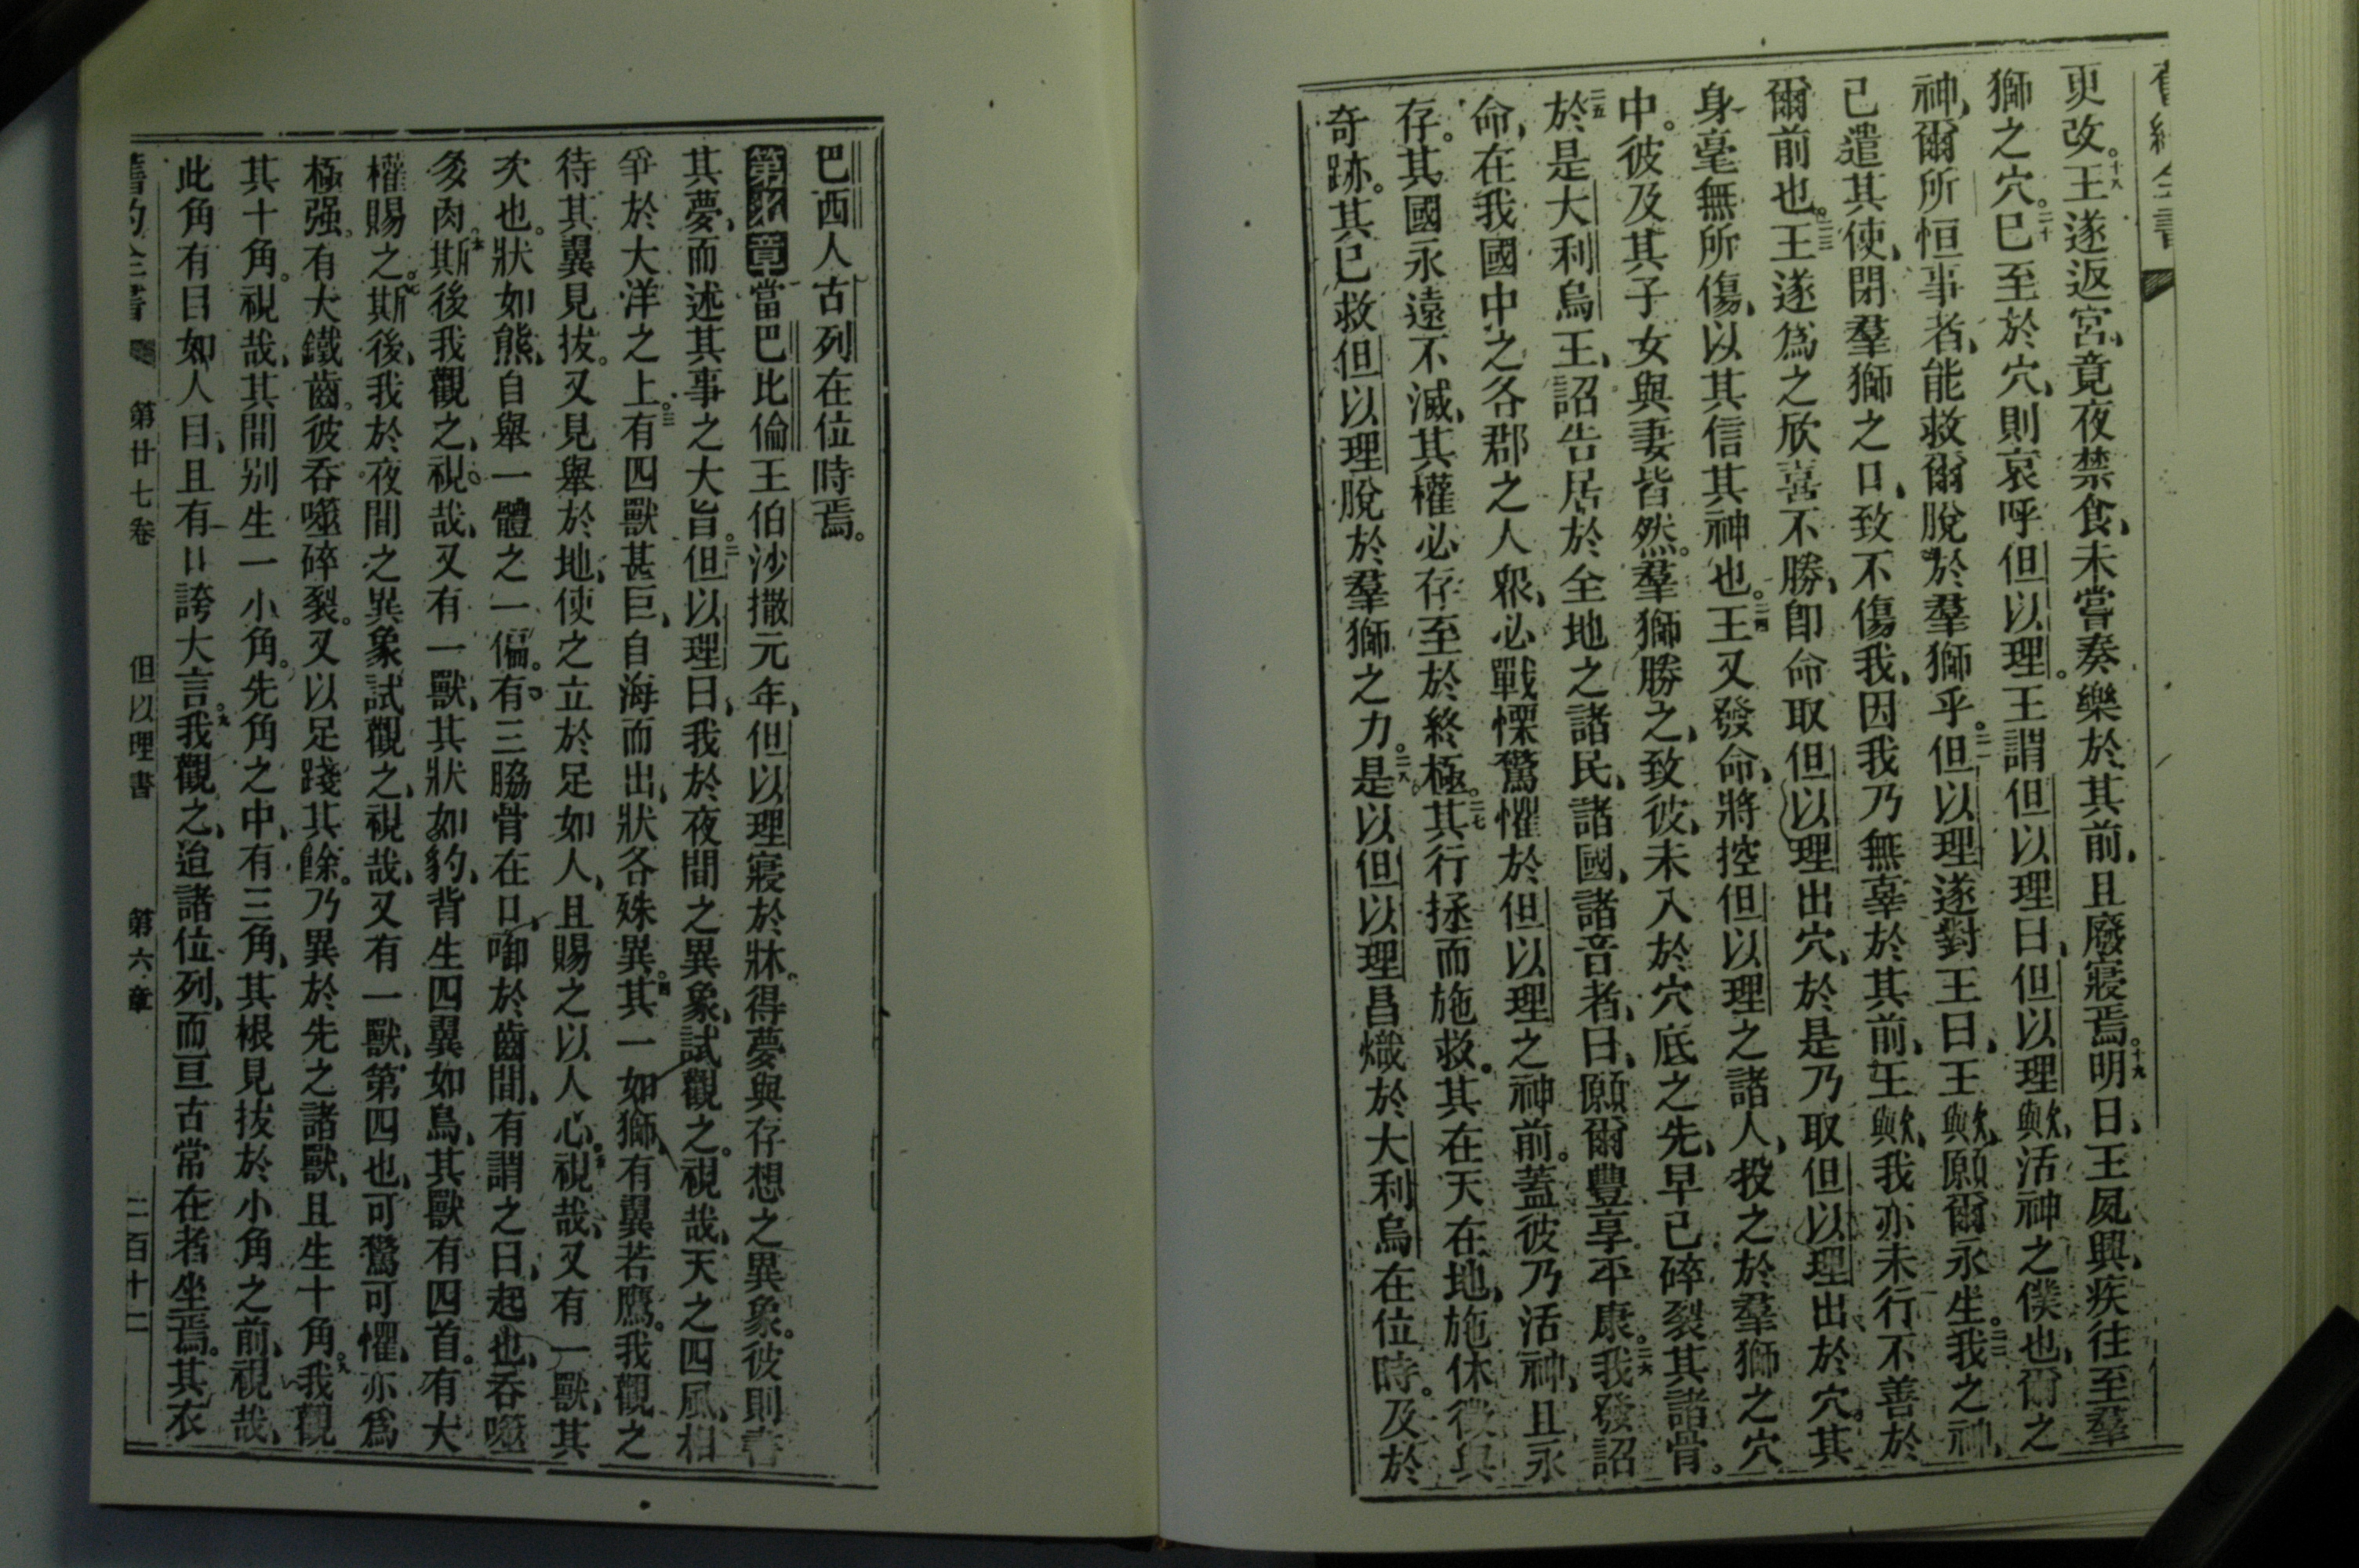 舊約全書
更改。十八王遂返宮、竟夜禁食、未嘗奏樂於其前、且廢寢焉。十九明日、王夙興、疾往至羣
獅之穴。二十巳至於穴、則哀呼但以理。王謂但以理曰、但以理歟、活神之僕也、爾之
神、爾所恒事者、能救爾脫於羣獅乎。二一但以理遂對王曰、王歟、願爾永生。二二我之神、
已遣其使、閉羣獅之口、致不傷我、因我乃無辜於其前、王歟、我亦未行不善於
爾前也。二三王遂爲之欣喜不勝、卽命取但以理出穴、於是乃取但以理出於穴、其
身毫無所傷、以其信其神也。二四王又發命、將控但以理之諸人、投之於羣獅之穴
中。彼及其子女與妻皆然。羣獅勝之、致彼未入於穴底之先、早已碎裂其諸骨。
二五於是大利烏王、詔告居於全地之諸民、諸國、諸音者、曰、願爾豐享平康。二六我發詔
命、在我國中之各郡之人衆、必戰慄驚懼於但以理之神前。蓋彼乃活神、且永
存。其國永遠不滅、其權必存至於終極。二七其行拯而施救。其在天在地、施休徵與
奇跡。其已救但以理脫於羣獅之力。二八是以但以理昌熾於大利烏在位時。及於
巴西人古列在位時焉。
第七章當巴比倫王伯沙撒元年、但以理寢於牀。得夢與存想之異象。彼則書
其夢、而述其事之大旨。二但以理曰、我於夜間之異象、試觀之。視哉、天之四風、相
爭於大洋之上。三有四獸甚巨、自海而出、狀各殊異。四其一如獅、有翼若鷹。我觀之
待其翼見拔。又見舉於地、使之立於足如人、且賜之以人心。五視哉、又有一獸、其
次也。狀如熊、自舉一體之一偏。有三脇骨在口、啣於齒間、有謂之曰、起也、吞噬
多肉。六斯後我觀之、視哉、又有一獸、其狀如豹、背生四翼如鳥、其獸有四首。有大
權賜之。七斯後、我於夜間之異象試觀之、視哉、又有一獸、第四也、可驚可懼、亦爲
極强。有大鐵齒。彼吞噬碎裂。又以足踐其餘。乃異於先之諸獸、且生十角。八我觀
其十角。視哉、其間别生一小角。先角之中、有三角、其根見拔於小角之前、視哉、
此角有目如人目、且有口誇大言。九我觀之、迨諸位列、而亘古常在者坐焉。其衣
舊約全書 第廿七卷 但以理書 第六章 二百十二